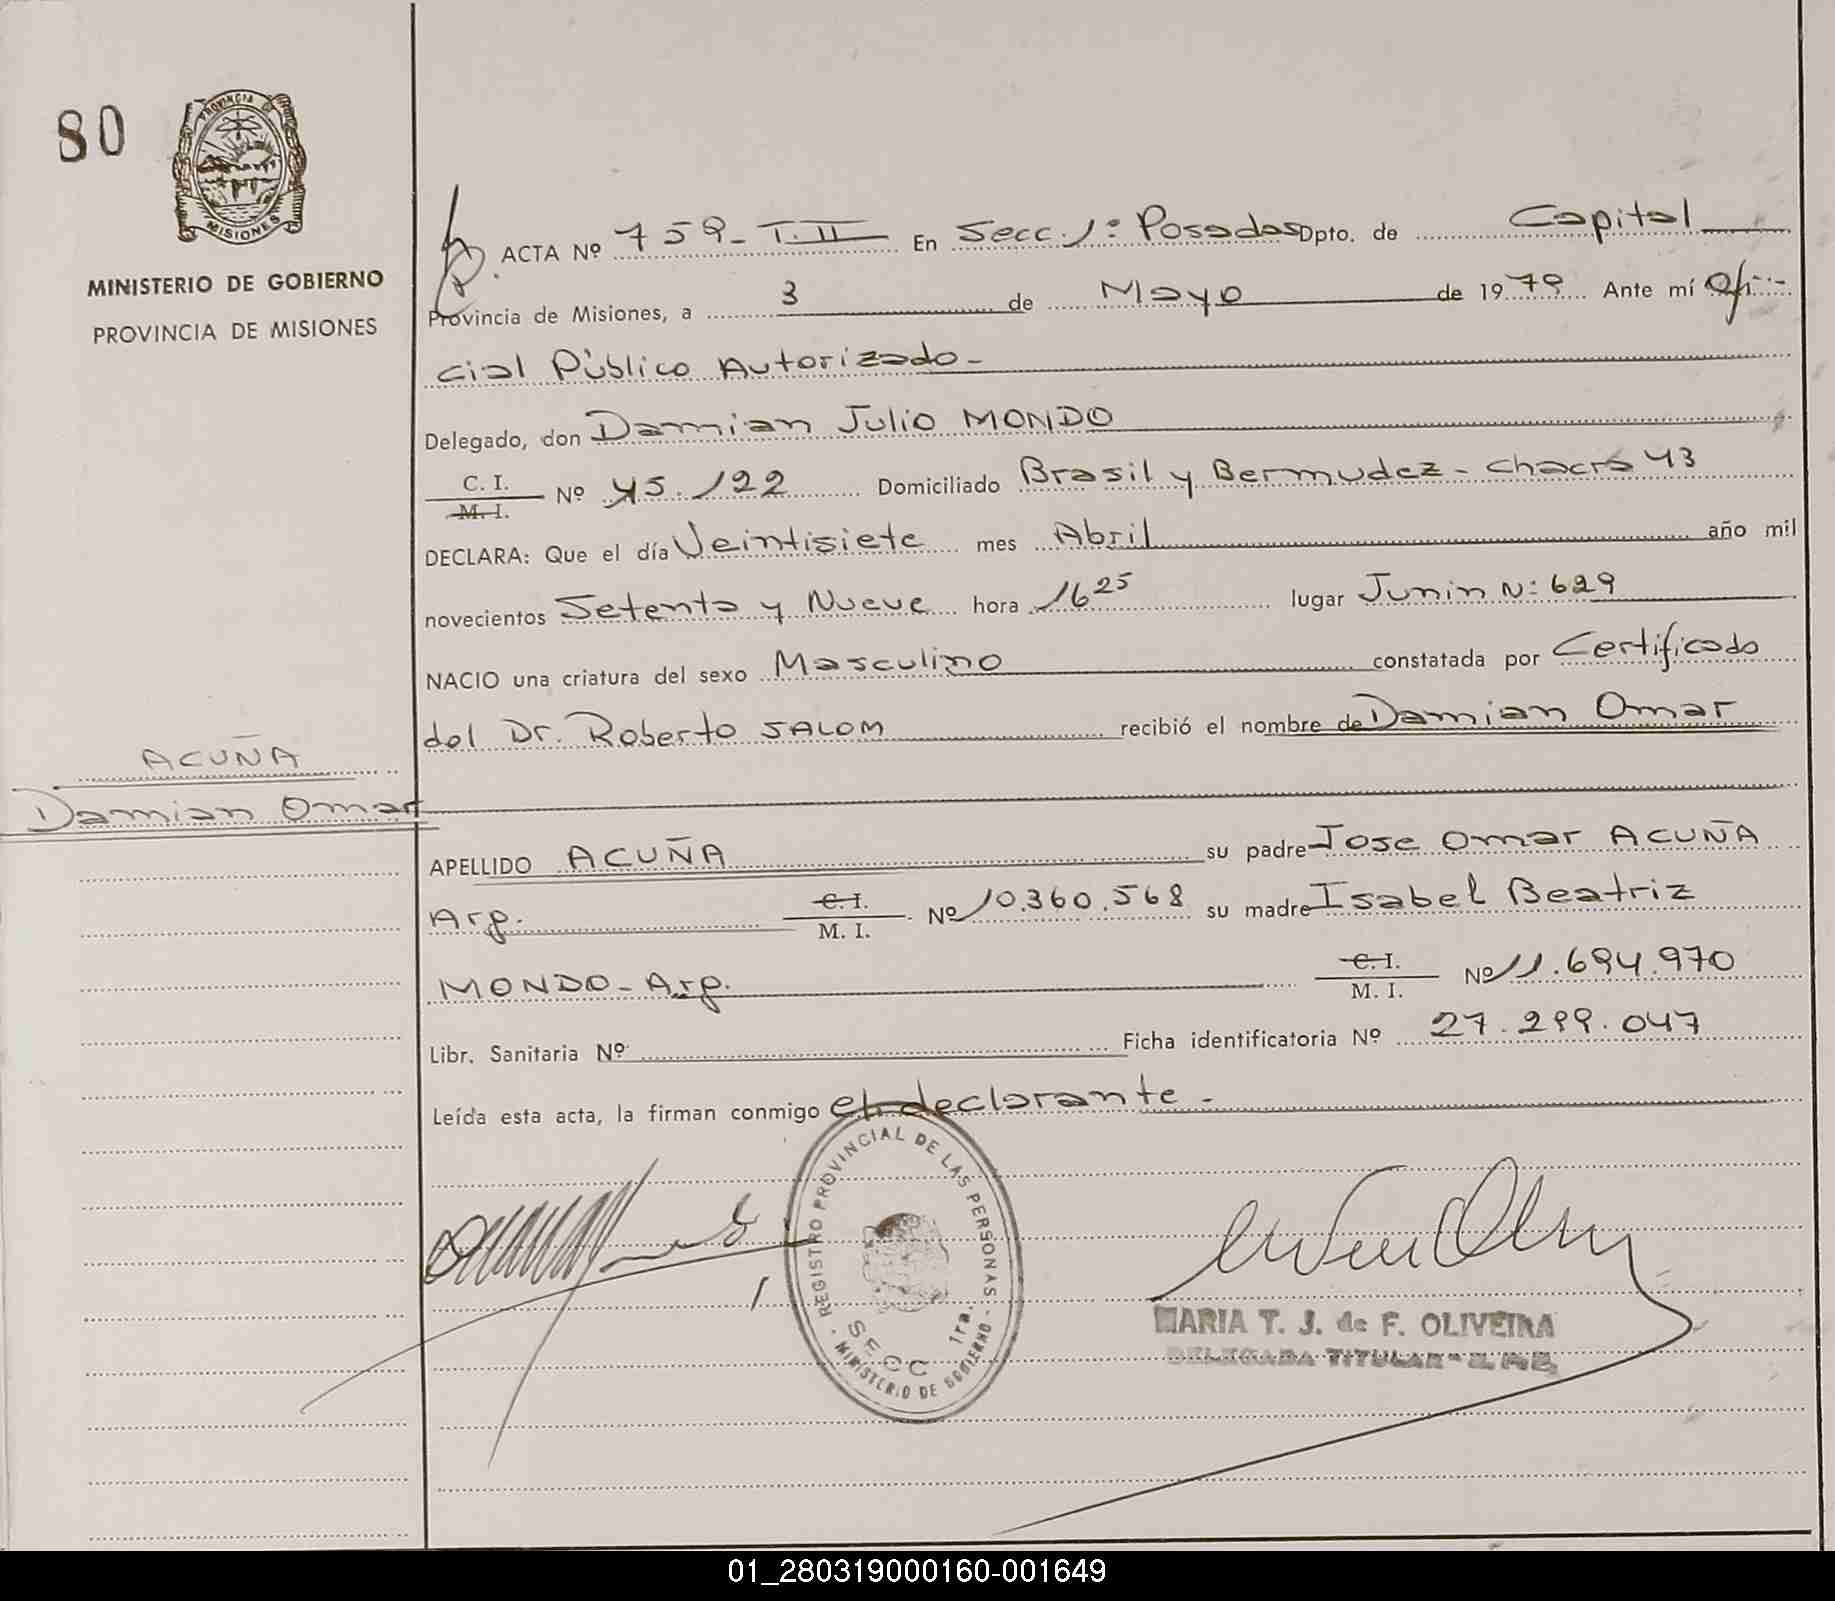 80
PROVINCIA DE
MISIONES
MINISTERIO DE GOBIERNO
PROVINCIA DE MISIONES
ACUÑA
Damian Omar
ACTA Nº 759_T.II En Secc. 1º Posadas Dpto. de Capital
Provincia de Misiones, a 3 de Mayo de 1979 Ante mí Ofi-
cial Público Autorizado-
Delegado, don Damian Julio MONDO
C. I.
M. I. Nº 45.122 Domiciliado Brasil y Bermudez - Chacra 43
DECLARA: Que el día Veintisiete mes Abril año mil
novecientos Setenta y Nueve hora 16 25 lugar Junin Nº 629
NACIO una criatura del sexo Masculino constatada por Certificado
del Dr. Roberto SALOM recibió el nombre de Damian Omar
APELLIDO ACUÑA su padre Jose Omar ACUÑA
Arg. C. I. M. I. Nº 10.360.568 su madre Isabel Beatriz
MONDO - Arg. C. I. M. I. Nº 11.694.970
Libr. Sanitaria Nº Ficha identificatoria Nº 27.299.047
Leída esta acta, la firman conmigo el declarante -
REGISTRO PROVINCIAL DE LAS PERSONAS - MINISTERIO DE GOBIERNO -
SECC 1ra.
MARIA T. J. de F. OLIVEIRA
DELEGADA TITULAR
01_280319000160-001649